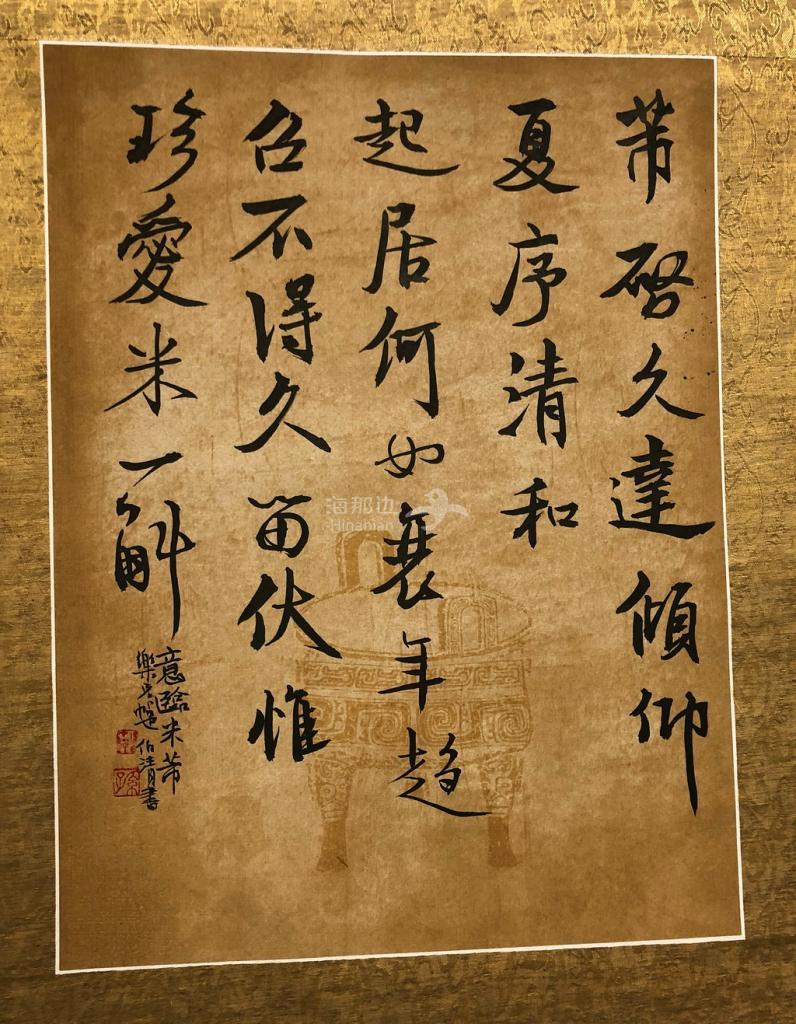 芾啓久違傾仰
夏序清和
起居何如衰年趨
召不得久留伏惟
珍愛米一斛
意臨米芾
樂 伯清書
海那边
Hinabian